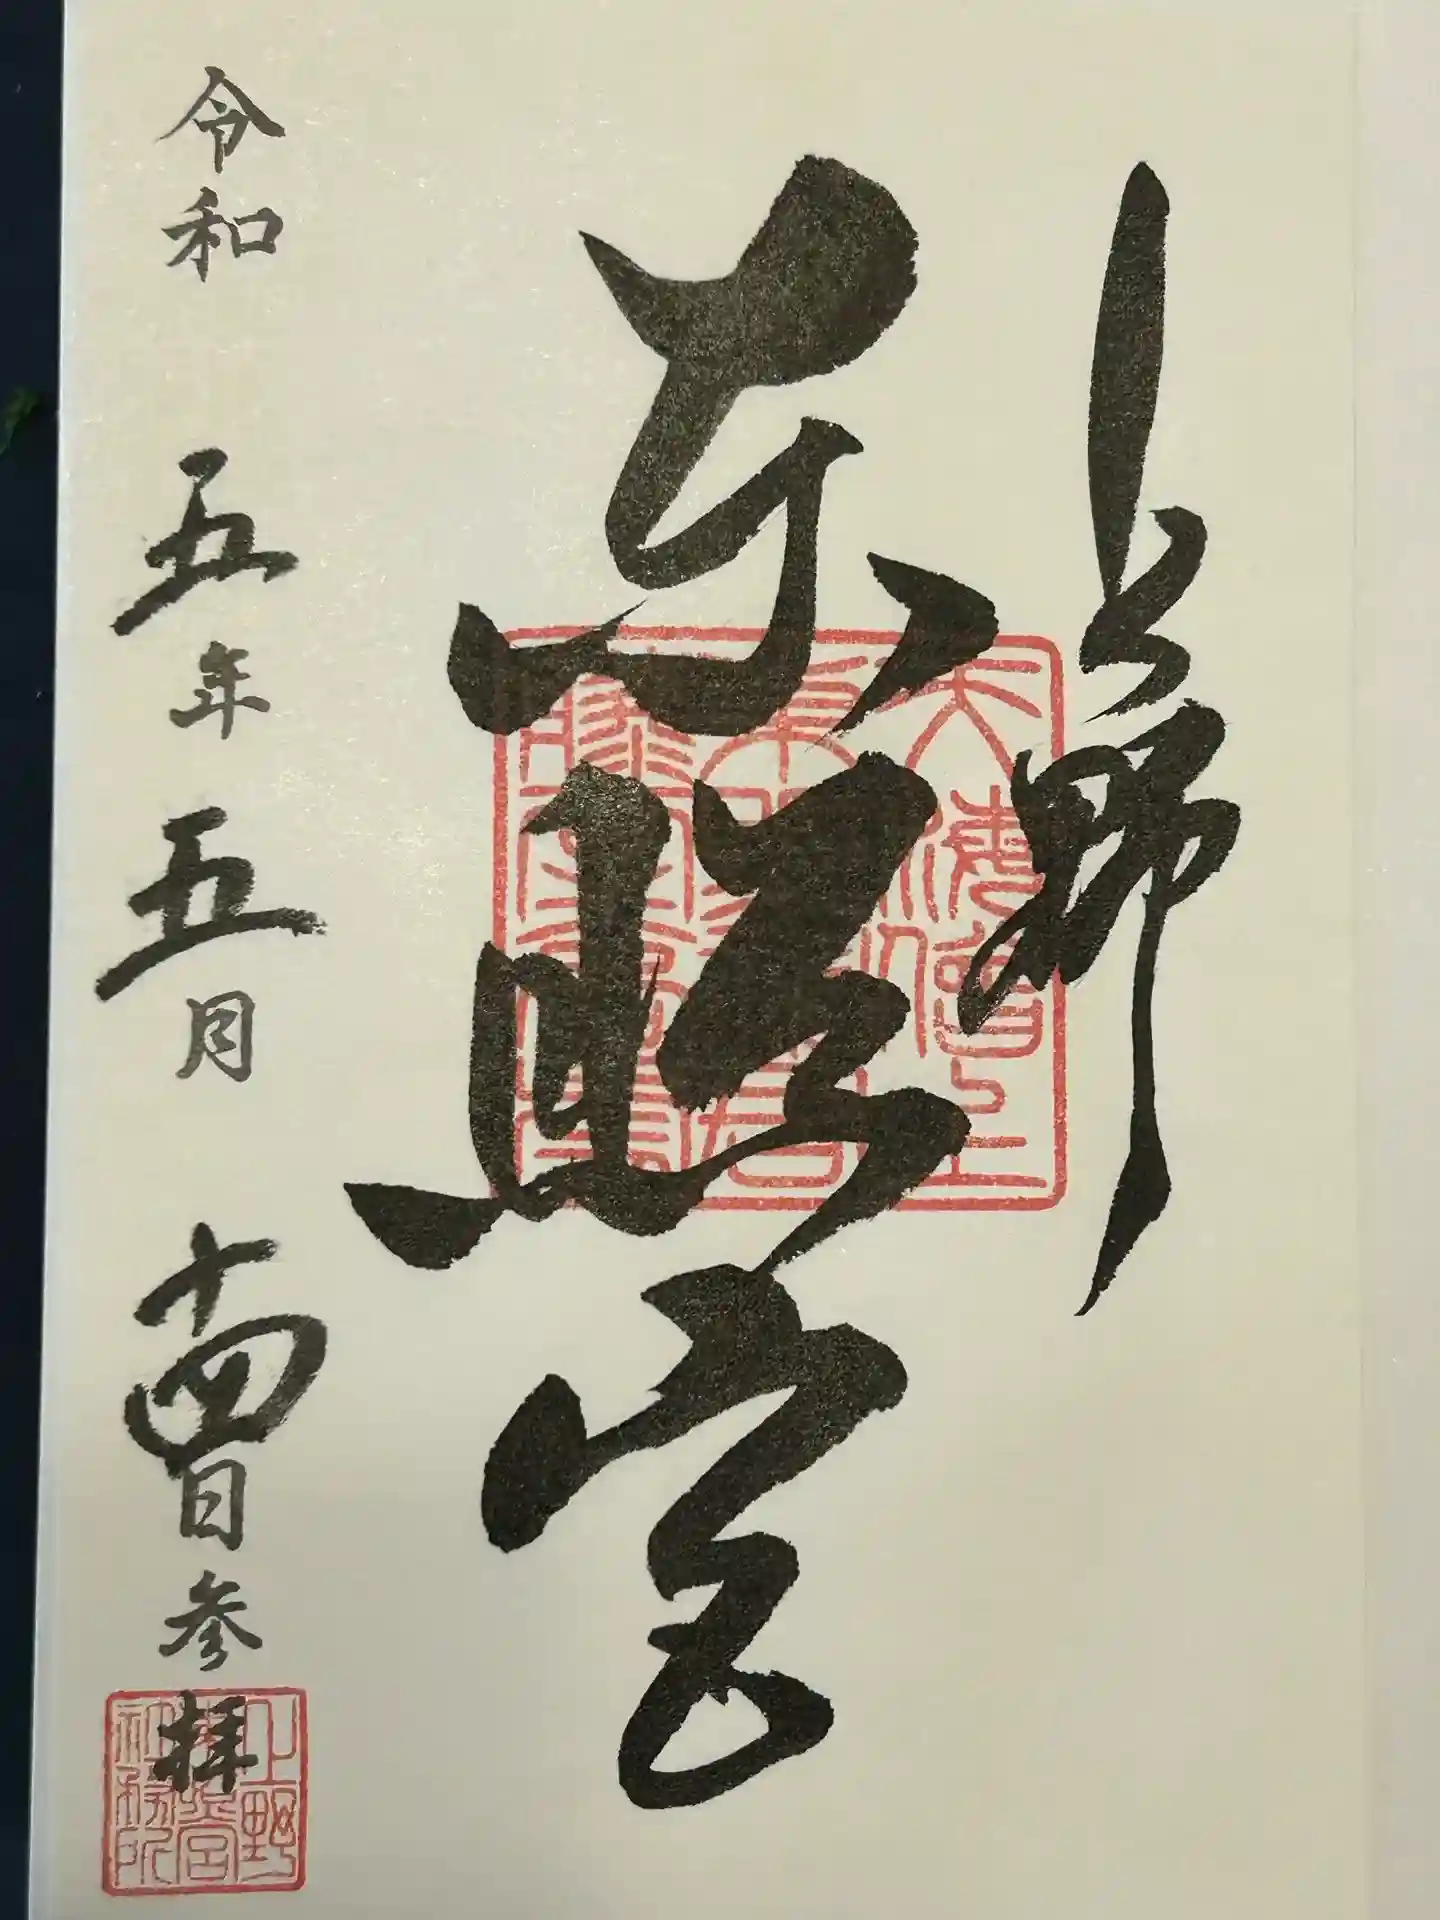 上野
東照宮
令和五年五月十四日参拝
上野
東照宮
社務所